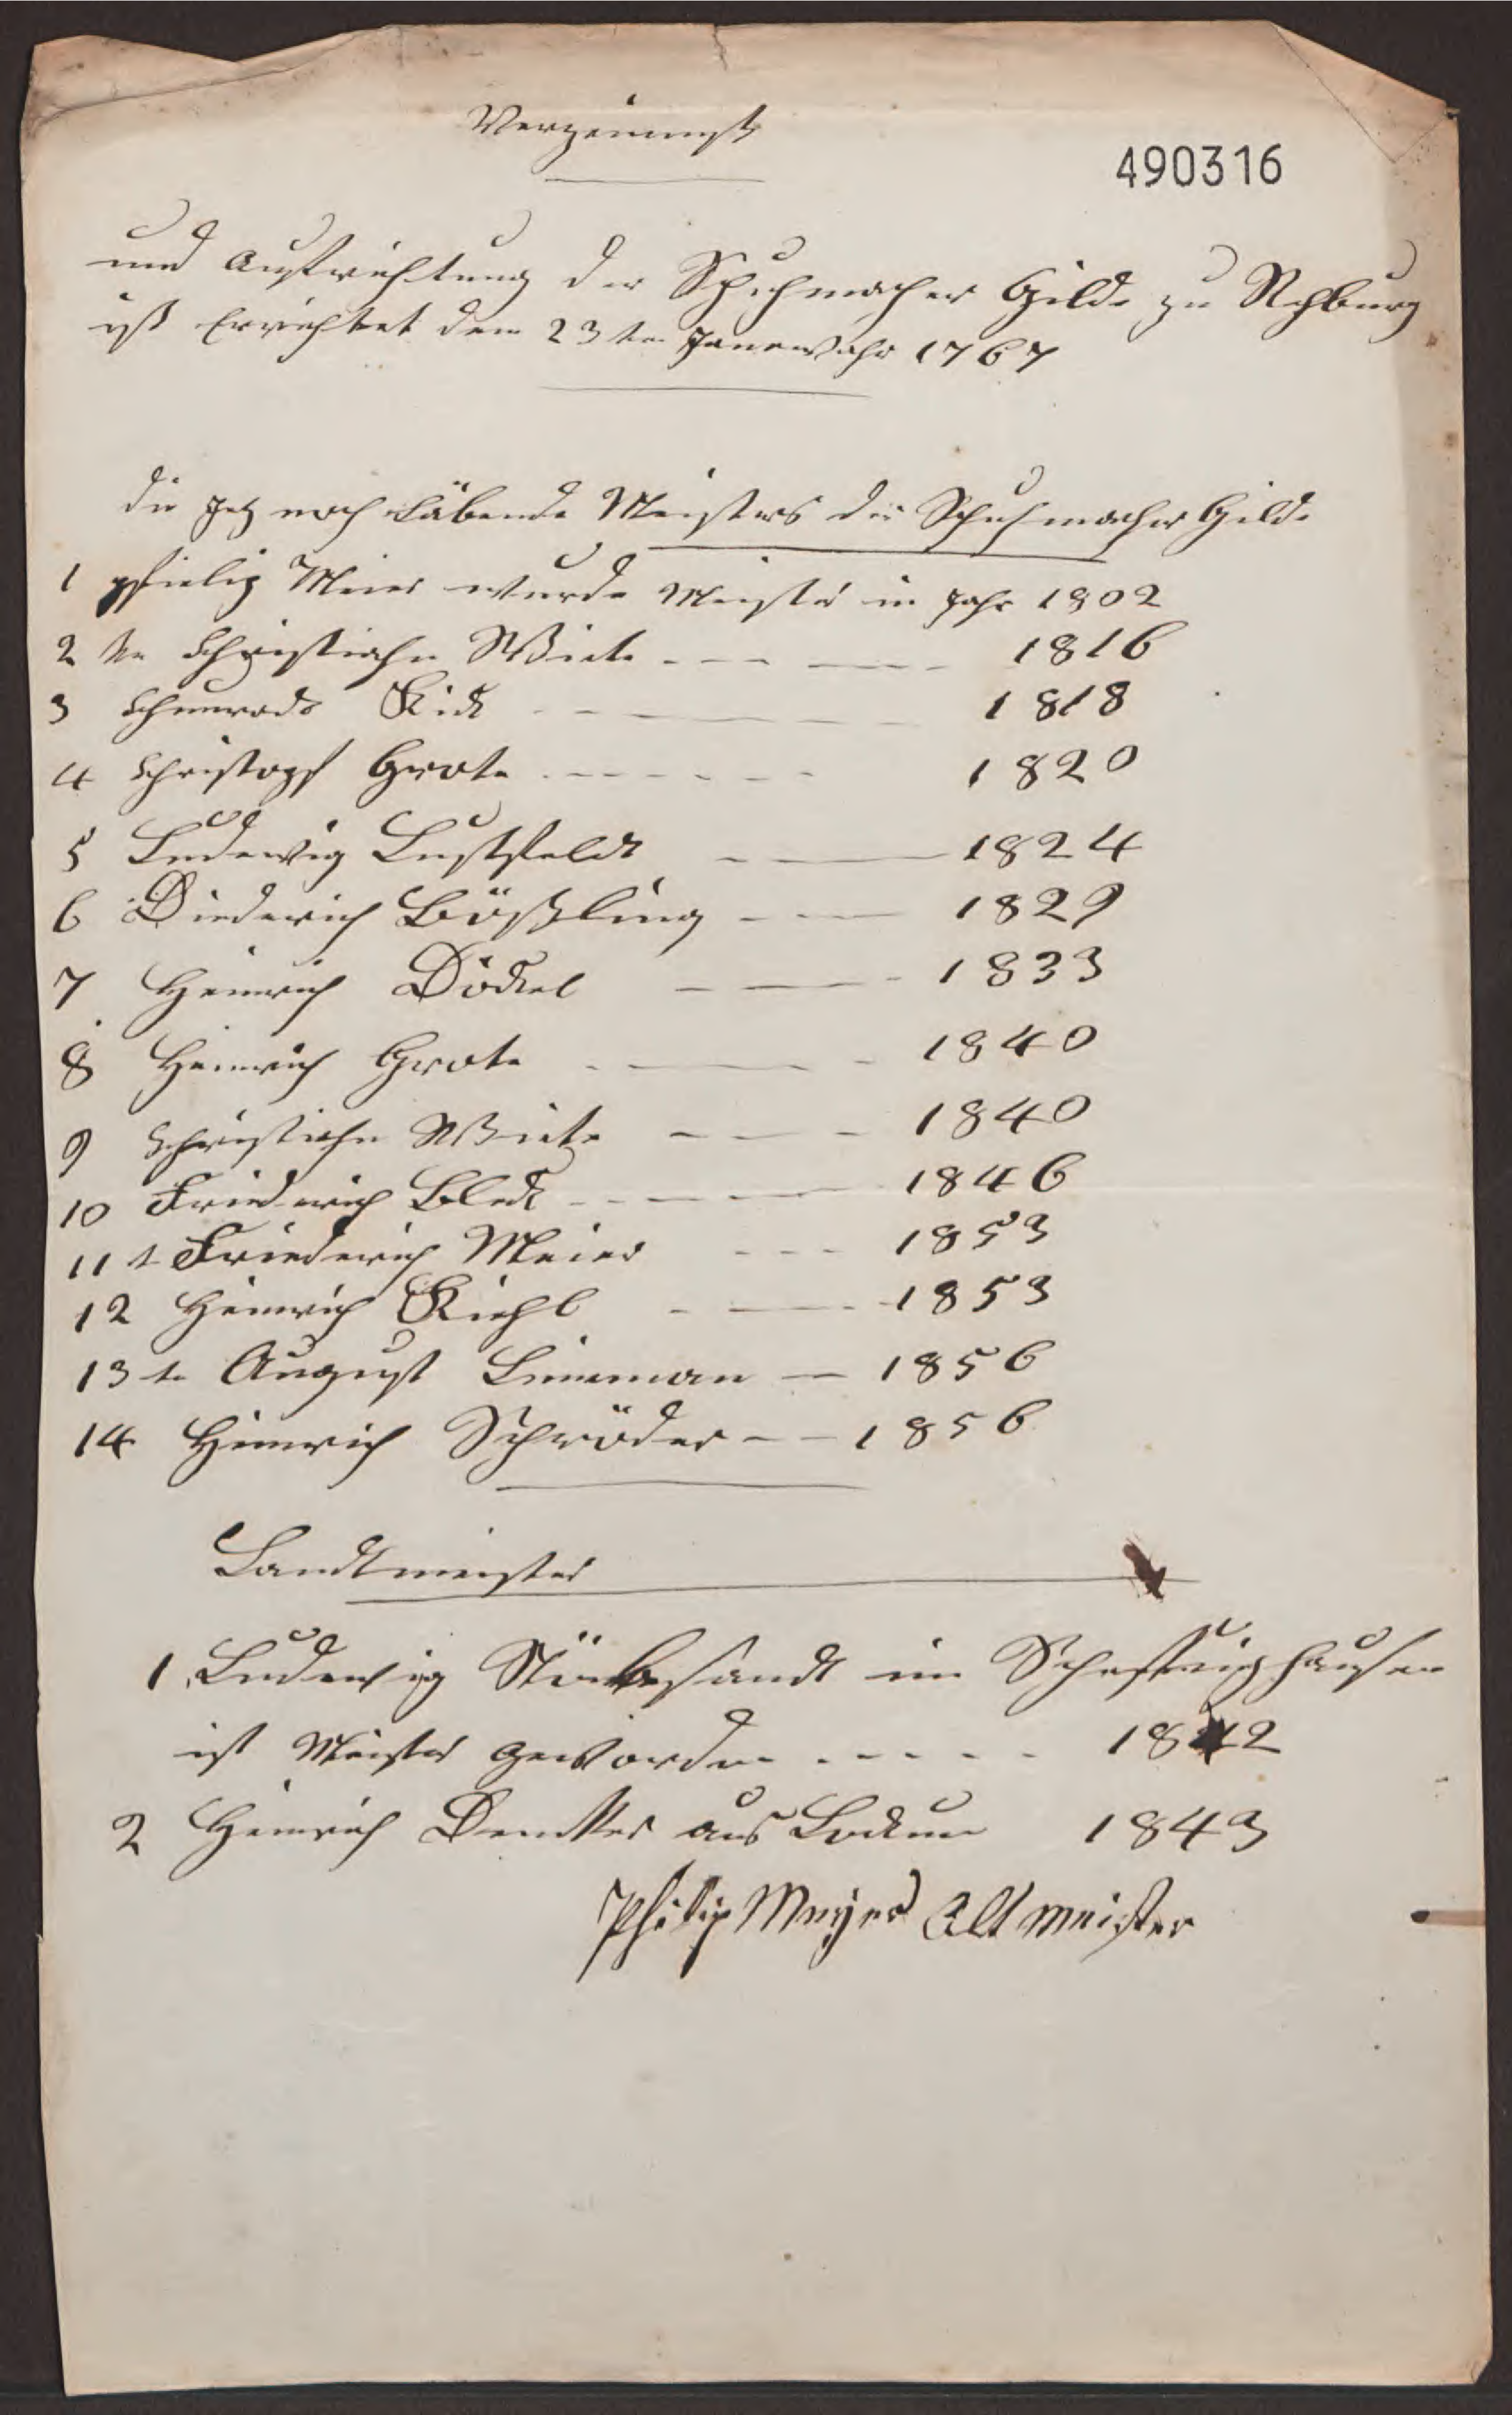 Verzeinniß
490316
und Aufrichtung der Schuhmacher Gilde zu Rehburg
ist Errichtet dem 23ten Janewahr 1767
die Jetz noch Läbende Meisters die Schuhmacher Gilde
1 Meier wurde Meister in Jahr 1802
2 te Christiahn Wiete 1816
3 1818
4 Christoph Grote 1820
5 Ludewig Lustfeldt 1824
6 Diederich Bößling 1829
7 Heinrich Döckel 1833
8 Heinrich Grote 1840
9 Christiahn Wiete 1840
10 Friederich Block 1846
11 t Friederich Meier 1853
12 Heinrich Kiehl 1853
13 te August Linneman 1856
14 Heinrich Schröder 1856
Landtmeister
1 Ludewig in
ist Meister geworden 1842
2 Heinrich aus Lockum 1843
Philip Meyer Altmeister